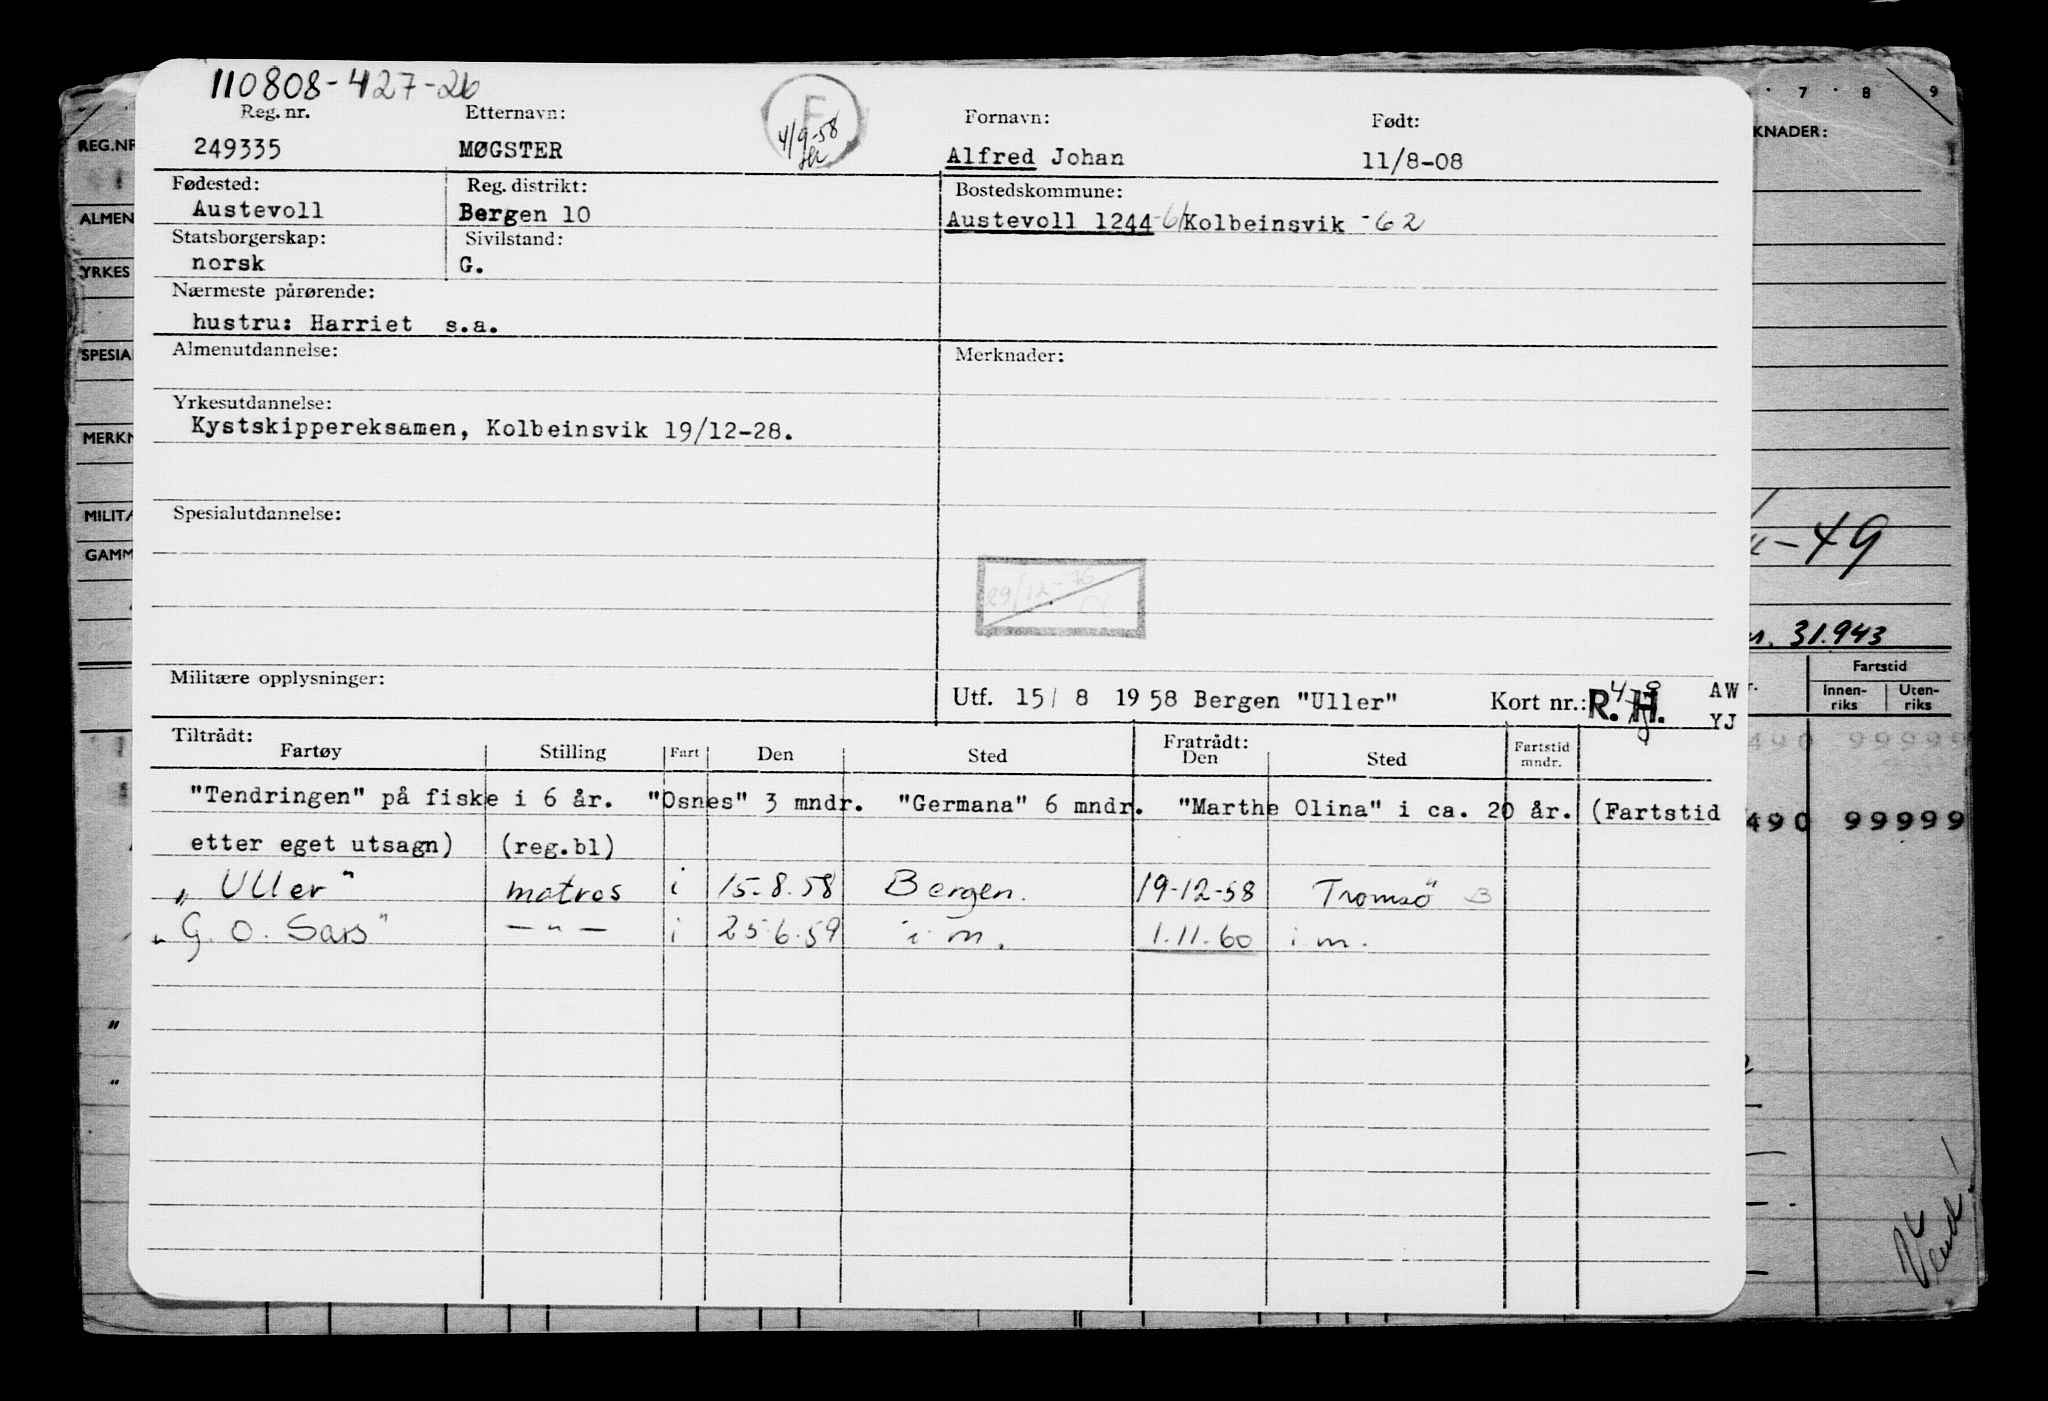 110808-427-26
Reg. nr. Etternavn: Fornavn: Født:
249335 MØGSTER 4/9-58 Alfred Johan 11/8-08
Fødested: Reg. distrikt: Bostedskommune:
Austevoll Bergen 10 Austevoll 1244-61 Kolbeinsvik -62
Statsborgerskap: Sivilstand:
norsk G.
Nærmeste pårørende:
hustru: Harriet s.a.
Almenutdannelse: Merknader:
Yrkesutdannelse:
Kystskippereksamen, Kolbeinsvik 19/12-28.
Spesialutdannelse:
29/12-76
Militære opplysninger: Utf. 15/ 8 1958 Bergen "Uller" Kort nr.: R. H. AW
YJ
Tiltrådt: Fratrådt:
Fartøy Stilling Fart Den Sted Den Sted Fartstid mndr.
"Tendringen" på fiske i 6 år. "Osnes" 3 mndr. "Germana" 6 mndr. "Marthe Olina" i ca. 20 år. (Fartstid
etter eget utsagn) (reg.bl)
„ Uller" matros i 15-8.58 Bergen. 19-12-58 Tromsö B
„ G. O. Sars" — " — i 25.6.59 i m. 1.11.60 i m.
REG.NR
ALMEN
YRKES
SPESIA
MERKN
MILITÆ
GAMM
7 8 9
KNADER:
-49
31.943
Fartstid
Innen-
riks
Uten-
riks
490 99999
490 99999
Vend!